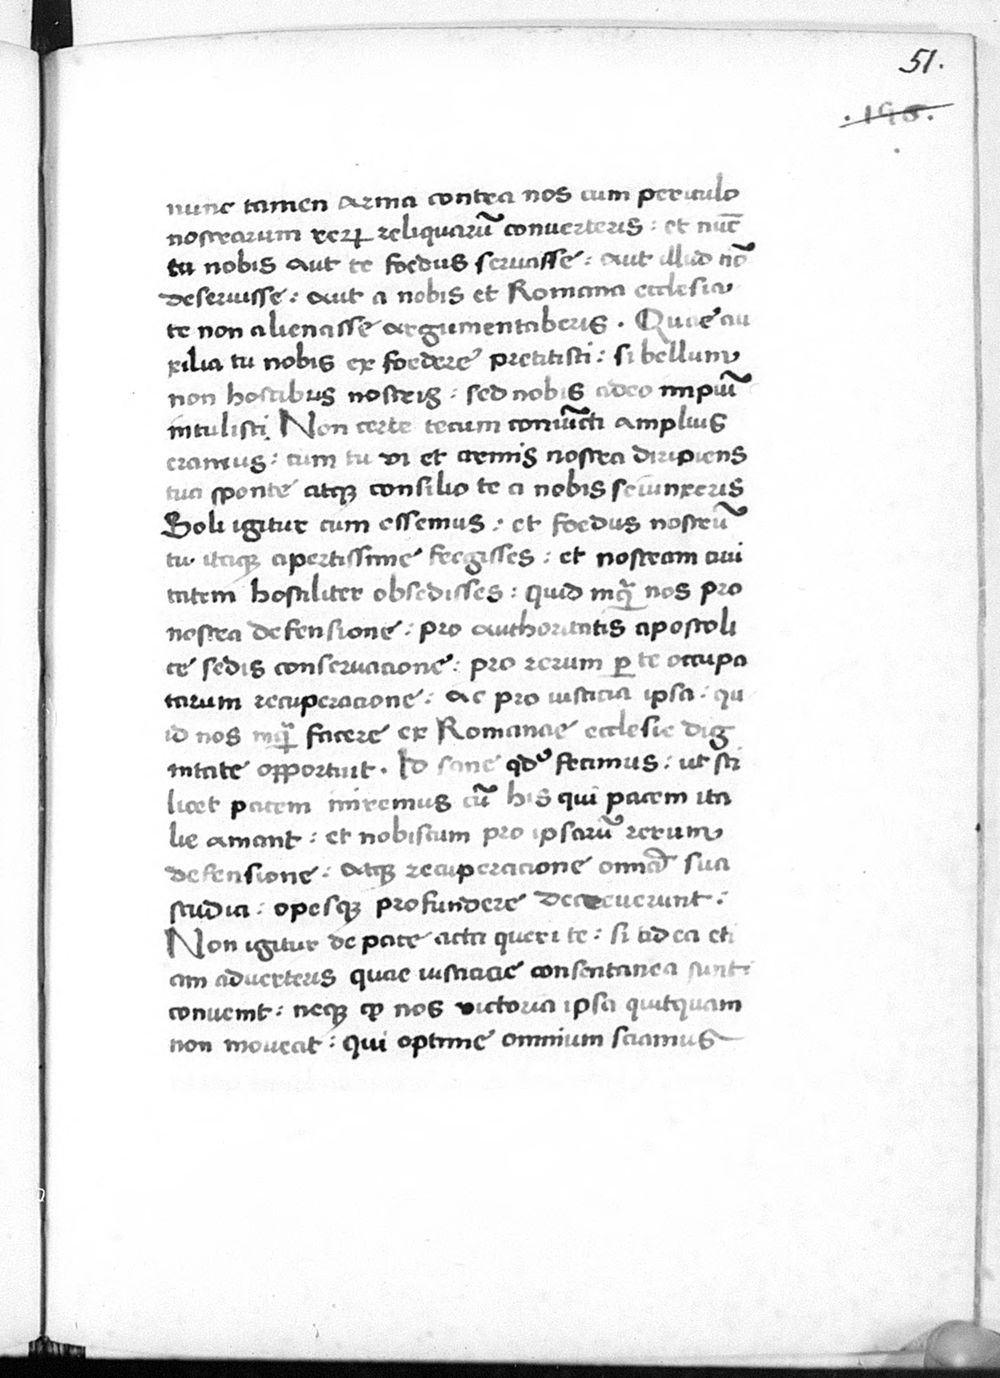 51.
.198.
nunc tamen arma contra nos cum periculo
nostrarum rerꝝ reliquarū conuerteris : et nūc
tu nobis aut te foedus seruasse : aut illud nō
deseruisse : aut a nobis et Romana ecclesia
te non alienasse argumentaberis . Quae au
xilia tu nobis ex foedere pretitisti : si bellum
non hostibus nostris : sed nobis adeo impiū
intulisti. Non certe tecum coniūcti amplius
eramus : cum tu vi et armis nostra diripiens
tua sponte atqꝫ consilio te a nobis seiunxeris
Soli igitur cum essemus : et foedus nostrū
tu itaqꝫ apertissime fregisses : et nostram ciui
tatem hostiliter obsedisses : quid inq̄ nos pro
nostra defensione : pro authoritatis apostoli
ce sedis conseruacione : pro rerum ꝑ te occupa
tarum recuperacione : ac pro iusticia ipsa : qu
id nos inq̄ facere ex Romanae ecclesie dig
nitate opportuit . Id sane qdᵒ fecimus : ut sci
licet pacem iniremus cū his qui pacem ita
lie amant : et nobiscum pro ipsarū rerum
defensione : atqꝫ recuperacione omnia sua
studia : opesqꝫ profundere decreuerunt :
Non igitur de pace acta queri te : si ad ea eti
am aduerteris quae iusticiae consentanea sunt :
conuenit : neqꝫ ꝙ nos victoria ipsa quitquam
non moueat : qui optime omnium sciamus